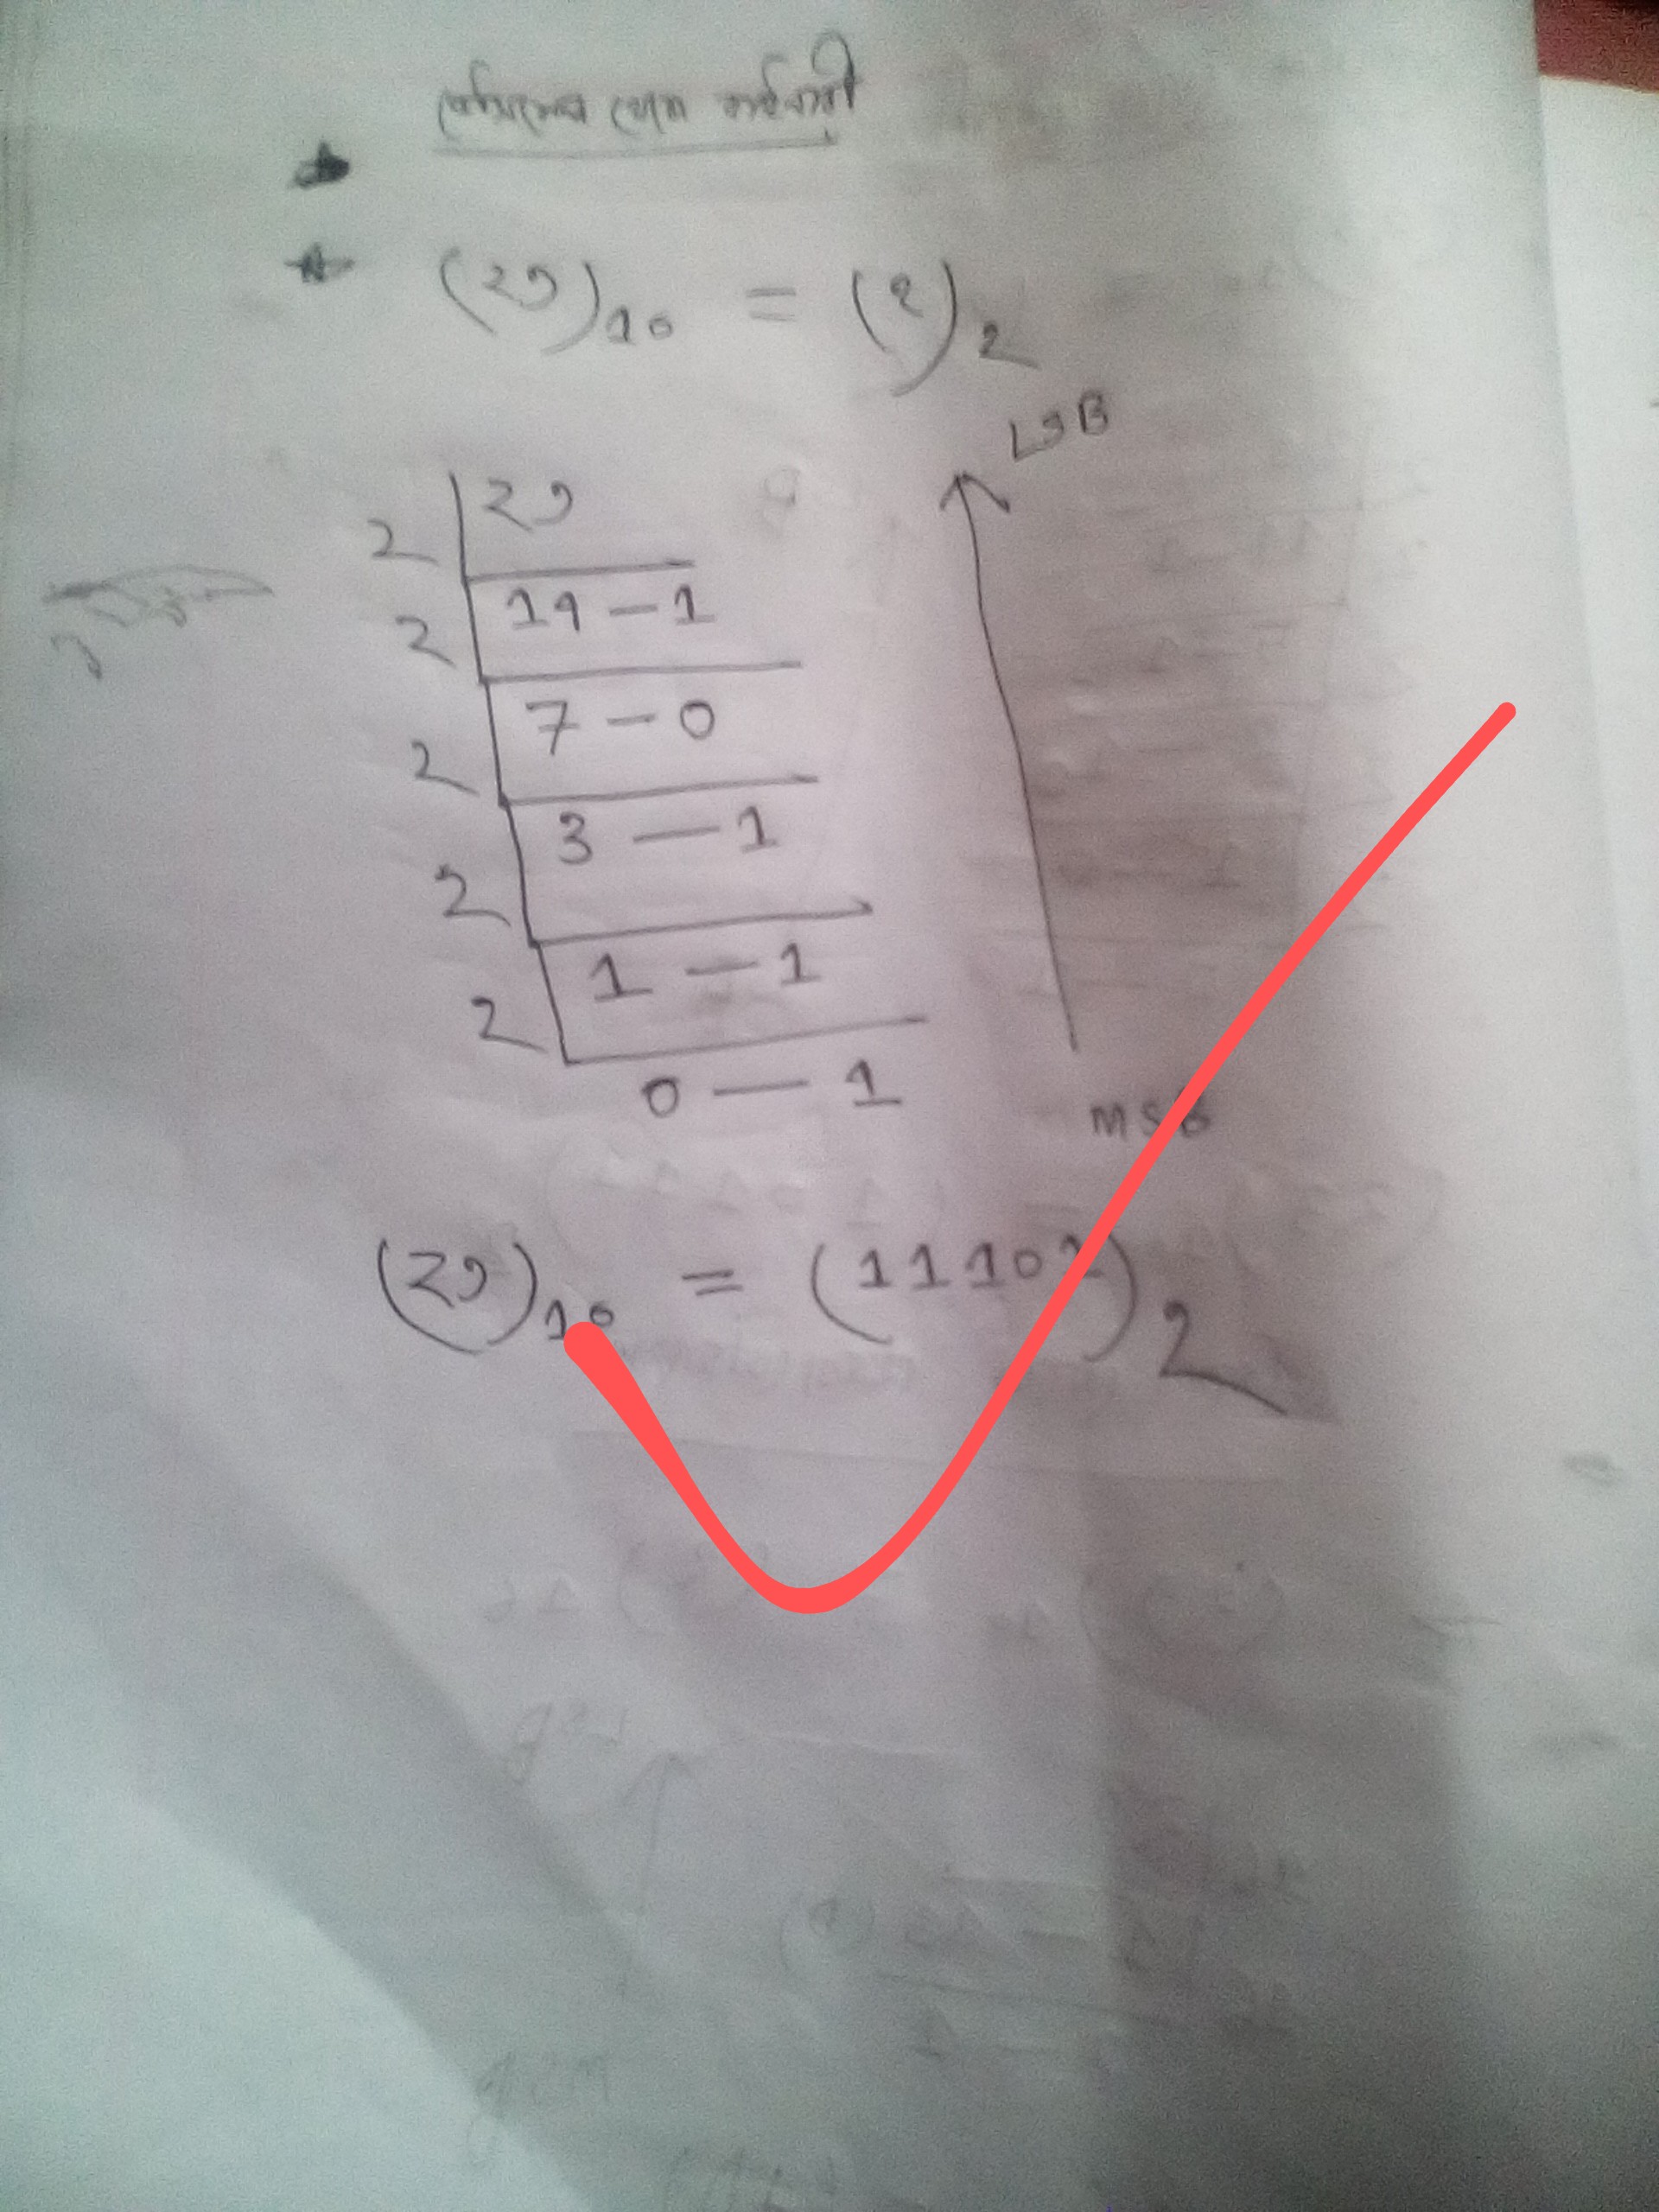 (29)10 = (?)2
LSB
2 29
2 14 — 1
2 7 — 0
2 3 — 1
2 1 — 1
0 — 1
MSB
(29)10 = (11101)2